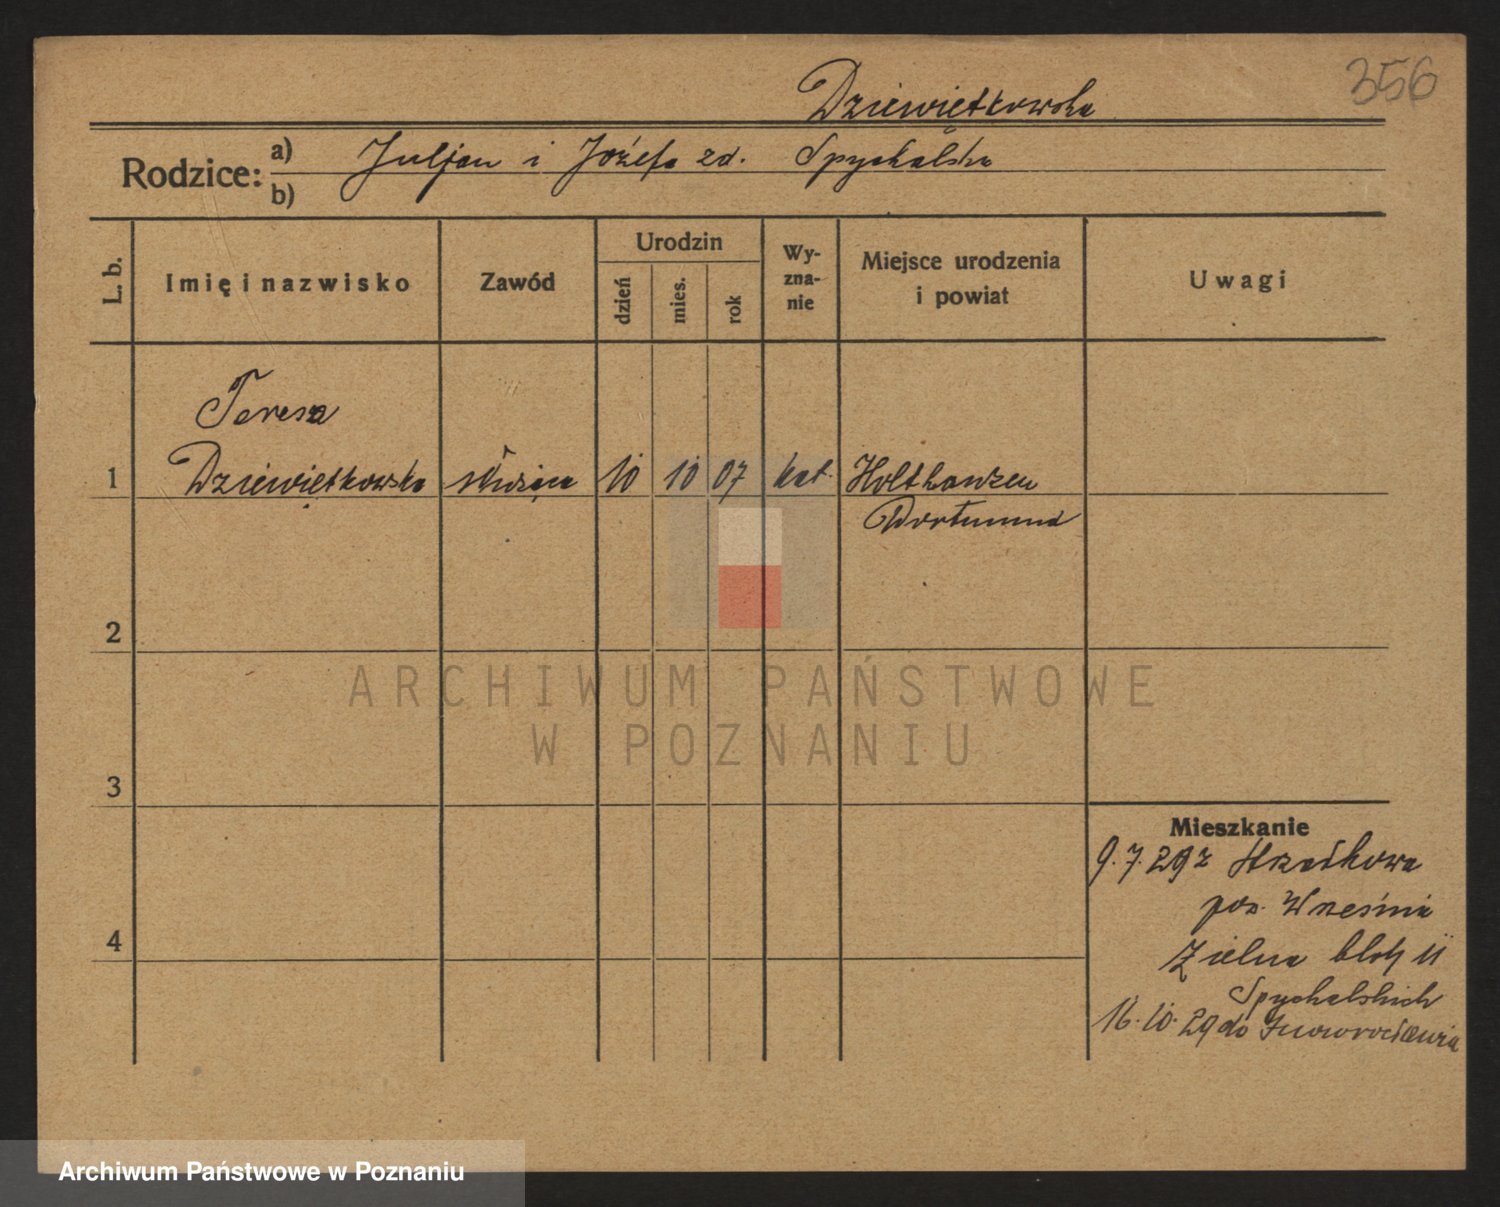 356
Dziewiętkowska
Rodzice: a) Juljan i Józefa zd. Spychalska
b)
L. b.
Imię i nazwisko
Zawód
Urodzin
dzień
mies.
rok
Wy-
zna-
nie
Miejsce urodzenia
i powiat
Uwagi
Teresa
1 Dziewiętkowska służąca 10 10 07 kat. Holthauzen
Dortmund
2
3
4
Mieszkanie
9.7.29 z
pow. Września
Zielna blok II
Spychalskich
16.10.29 do Inowrocławia
ARCHIWUM PAŃSTWOWE
W POZNANIU
Archiwum Państwowe w Poznaniu